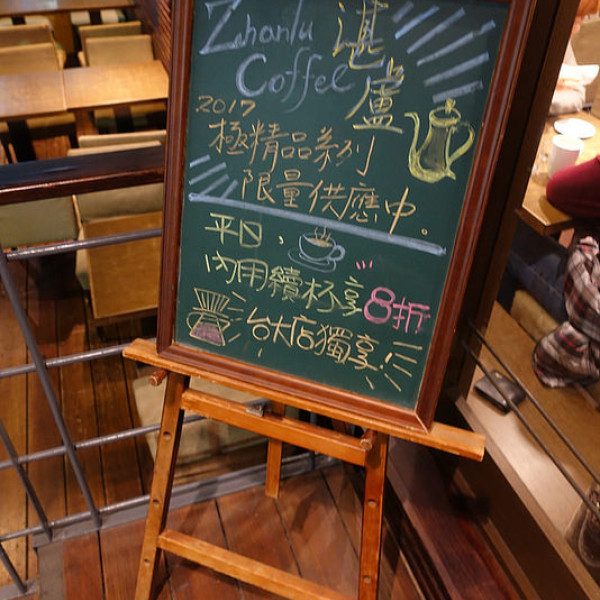 Zhanlu 湛盧
Coffee
2017
極精品系列
限量供應中。
平日,
內用續杯享8折
台大店獨享!